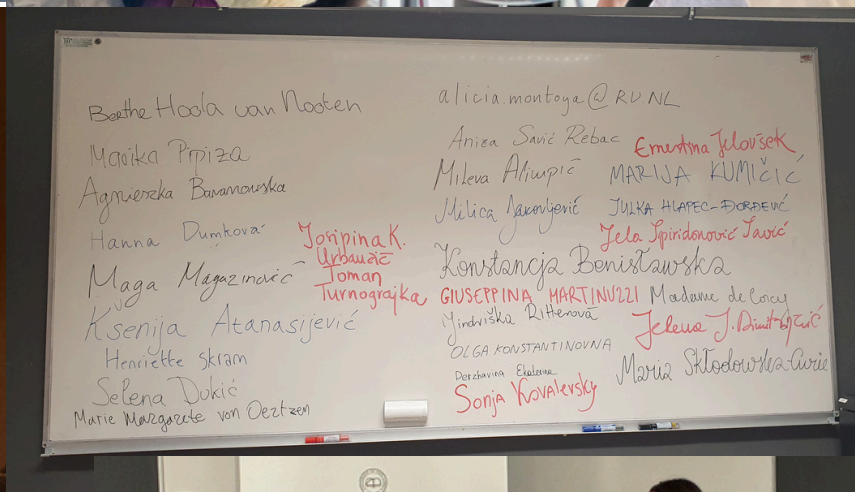 Beethe Hoola van Nooten
Mavika Pipiza
Agnieszka Baranowska
Hanna Dumková
Maga Magazinović
Ksenija Atanasijević
Henriette Skram
Selena Dukić
Marie Margarete von Oertzen
Josipina K.
Urbančič
Toman
Turnograjka
alicia.montoya@RUNL
Anica Savić Rebac
Ernestina Jelovšek
Mileva Alimpić
MARIJA KUMIČIĆ
Milica Jakovljević
JULKA HLAPEC-ĐORĐEVIĆ
Jela Spiridonović Savić
Konstancja Benisławska
GIUSEPPINA MARTINUZZI
Madame de Coicy
Jindriška Rittenová
Jelena J. Dimitrijević
OLGA KONSTANTINOVNA
Derzhavina Ekaterina
Maria Skłodowska-Curie
Sonja Kovalevsky